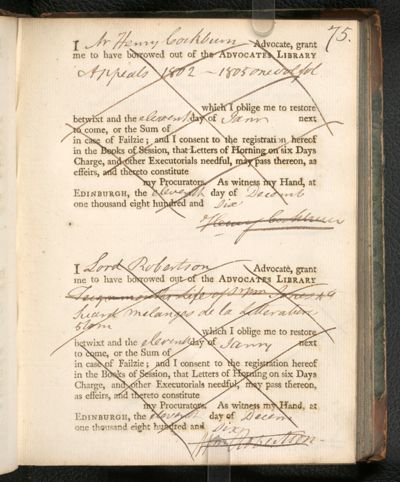 75.
I Mr Henry Cockburn Advocate, grant
me to have borrowed out of the ADVOCATES LIBRARY
Appeals 1802 - 1805 one vol fol
which I oblige me to restore
betwixt and the eleventh day of Janry next
to come, or the Sum of
in case of Failzie; and I consent to the registration hereof
in the Books of Session, that Letters of Horning on six Days
Charge, and other Executorials needful, may pass thereon, as
effeirs, and thereto constitute
my Procurators. As witness my Hand, at
EDINBURGH, the eleventh day of Decemb
one thousand eight hundred and six
Henry Cockburn
I Lord Robertson Advocate, grant
me to have borrowed out of the ADVOCATES LIBRARY
Life of Jones
melanges de la Litterature
5 tom
which I oblige me to restore
betwixt and the eleventh day of Janry next
to come, or the Sum of
in case of Failzie; and I consent to the registration hereof
in the Books of Session, that Letters of Horning on six Days
Charge, and other Executorials needful, may pass thereon,
as effeirs, and thereto constitute
my Procurators. As witness my Hand, at
EDINBURGH, the eleventh day of Decem
one thousand eight hundred and six
Robertson